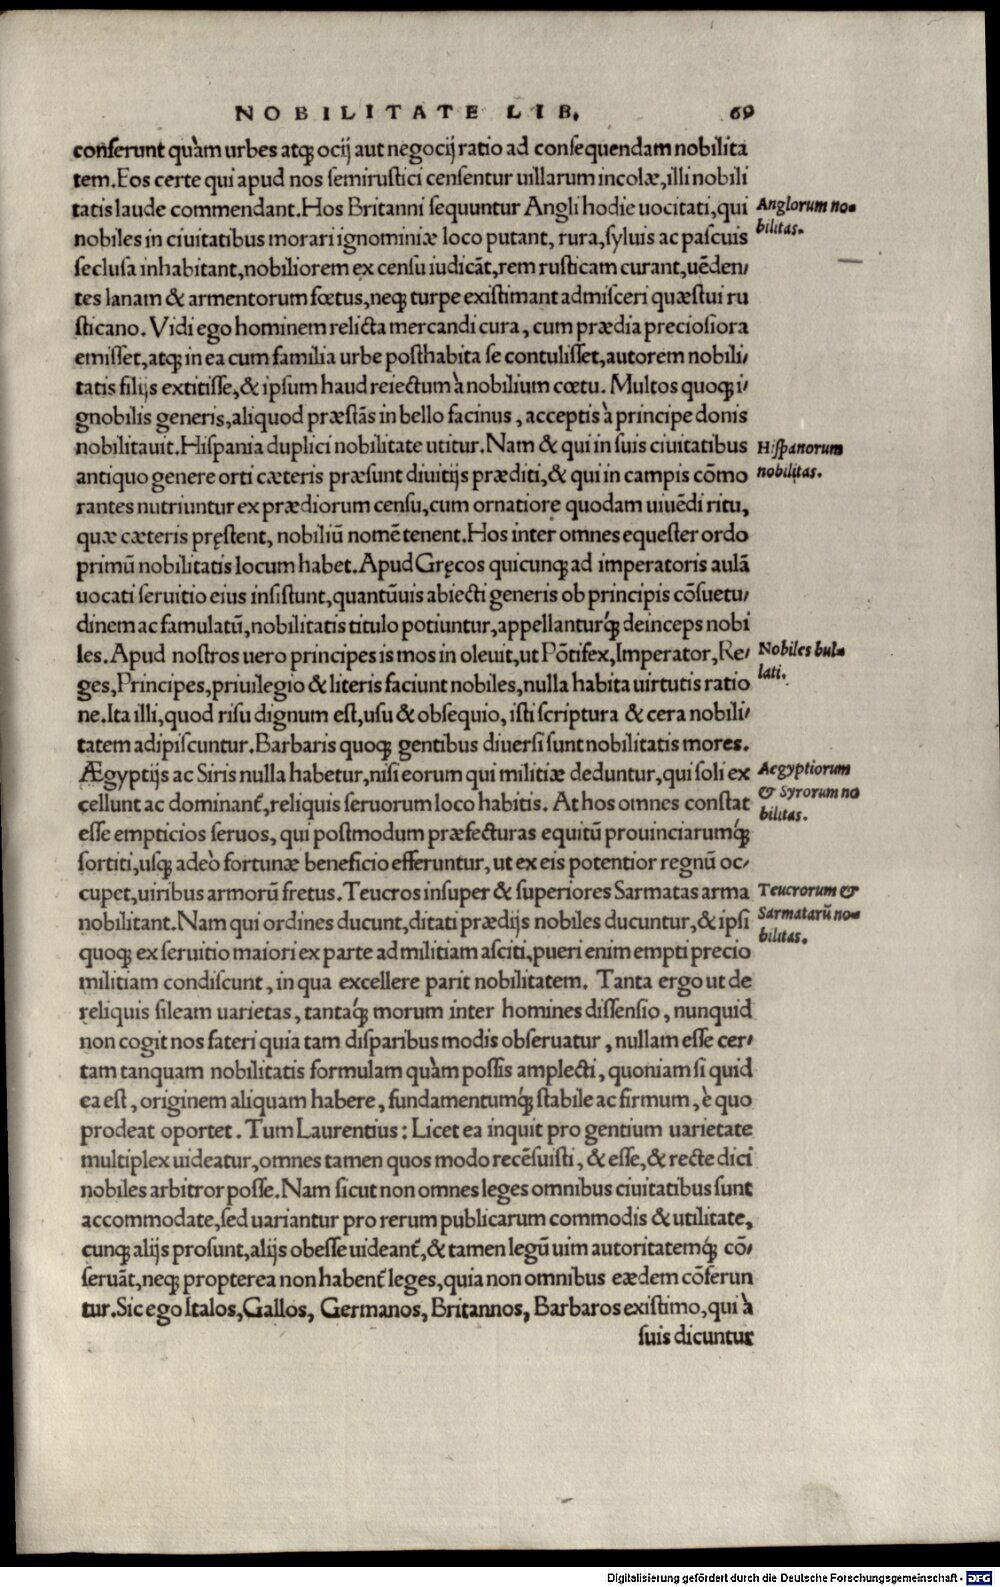 NOBILITATE LIB. 69
conferunt quàm urbes atq; ocij aut negocij ratio ad consequendam nobilita
tem. Eos certe qui apud nos semirustici censentur uillarum incolæ, illi nobili
tatis laude commendant. Hos Britanni sequuntur Angli hodie uocitati, qui
Anglorum no=
nobiles in ciuitatibus morari ignominiæ loco putant, rura, syluis ac pascuis
bilitas.
seclusa inhabitant, nobiliorem ex censu iudicãt, rem rusticam curant, uẽden/
tes lanam & armentorum fœtus, neq; turpe existimant admisceri quæstui ru
sticano. Vidi ego hominem relicta mercandi cura, cum prædia preciosiora
emisset, atq; in ea cum familia urbe posthabita se contulisset, autorem nobili/
tatis filijs extitisse, & ipsum haud reiectum à nobilium cœtu. Multos quoq; i/
gnobilis generis, aliquod præstãs in bello facinus, acceptis à principe donis
nobilitauit. Hispania duplici nobilitate utitur. Nam & qui in suis ciuitatibus
Hispanorum
antiquo genere orti cæteris præsunt diuitijs præditi, & qui in campis cõmo
nobilitas.
rantes nutriuntur ex prædiorum censu, cum ornatiore quodam uiuẽdi ritu,
quæ cæteris pręstent, nobiliũ nomẽ tenent. Hos inter omnes equester ordo
primũ nobilitatis locum habet. Apud Gręcos quicunq; ad imperatoris aulã
uocati seruitio eius insistunt, quantũuis abiecti generis ob principis cõsuetu/
dinem ac famulatũ, nobilitatis titulo potiuntur, appellanturq́; deinceps nobi
les. Apud nostros uero principes is mos in oleuit, ut Põtifex, Imperator, Re/
Nobiles bul=
lati.
ges, Principes, priuilegio & literis faciunt nobiles, nulla habita uirtutis ratio
ne. Ita illi, quod risu dignum est, usu & obsequio, isti scriptura & cera nobili/
tatem adipiscuntur. Barbaris quoq; gentibus diuersi sunt nobilitatis mores.
Ægyptijs ac Siris nulla habetur, nisi eorum qui militiæ deduntur, qui soli ex
Aegyptiorum
& Syrorum no
bilitas.
cellunt ac dominant̃, reliquis seruorum loco habitis. At hos omnes constat
esse empticios seruos, qui postmodum præfecturas equitũ prouinciarumq́;
sortiti, usq; adeò fortunæ beneficio efferuntur, ut ex eis potentior regnũ oc/
cupet, uiribus armorũ fretus. Teucros insuper & superiores Sarmatas arma
Teucrorum &
Sarmatarũ no=
bilitas.
nobilitant. Nam qui ordines ducunt, ditati prædijs nobiles ducuntur, & ipsi
quoq; ex seruitio maiori ex parte ad militiam asciti, pueri enim empti precio
militiam condiscunt, in qua excellere parit nobilitatem. Tanta ergo ut de
reliquis sileam uarietas, tantaq́; morum inter homines dissensio, nunquid
non cogit nos fateri quia tam disparibus modis obseruatur, nullam esse cer/
tam tanquam nobilitatis formulam quàm possis amplecti, quoniam si quid
ea est, originem aliquam habere, fundamentumq́; stabile ac firmum, è quo
prodeat oportet. Tum Laurentius: Licet ea inquit pro gentium uarietate
multiplex uideatur, omnes tamen quos modo recẽsuisti, & esse, & recte dici
nobiles arbitror posse. Nam sicut non omnes leges omnibus ciuitatibus sunt
accommodate, sed uariantur pro rerum publicarum commodis & utilitate,
cunq; alijs prosunt, alijs obesse uideant̃, & tamen legũ uim autoritatemq́; cõ/
seruãt, neq; propterea non habent̃ leges, quia non omnibus eædem cõferun
tur. Sic ego Italos, Gallos, Germanos, Britannos, Barbaros existimo, qui à
suis dicuntur
Digitalisierung gefördert durch die Deutsche Forschungsgemeinschaft - DFG